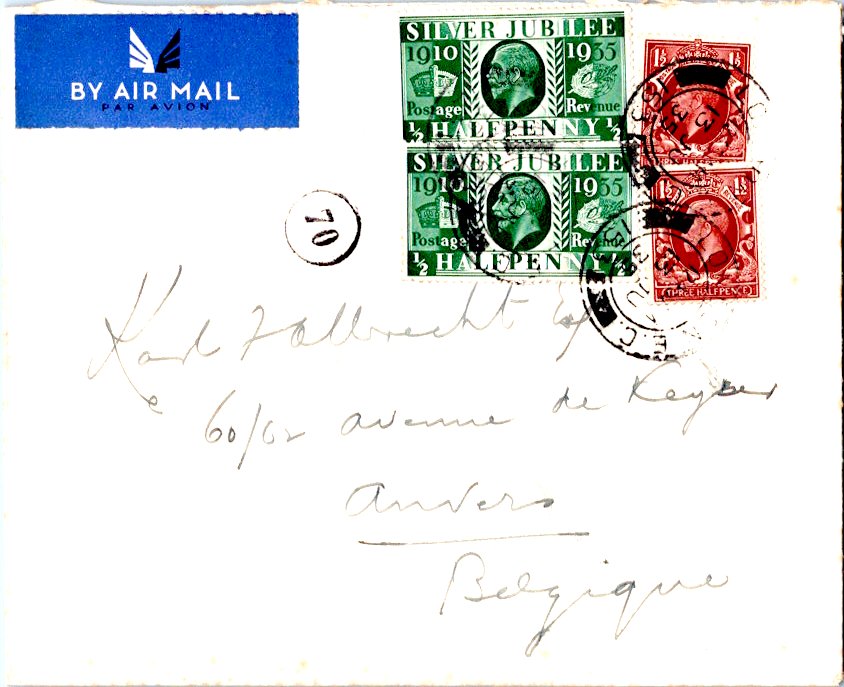 BY AIR MAIL
PAR AVION
SILVER JUBILEE
1910 1935
Postage Revenue
½ HALFPENNY ½
SILVER JUBILEE
1910 1935
Postage Revenue
½ HALFPENNY ½
1½ 1½
THREE HALFPENCE
1½ 1½
THREE HALFPENCE
E.C.
70
Karl Halbrecht Esq
60/62 avenue de Keyser
Anvers
Belgique